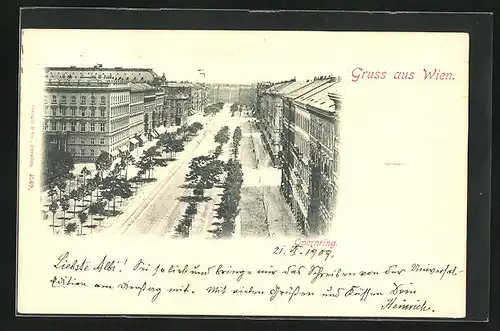 Gruss aus Wien.
Opernring.
21. IX. 1909.
Liebste Albi! Sei so lieb und bringe mir das Schreiben von der Universal-
Edition am Dienstag mit. Mit vielen Grüßen und Küssen Dein
Heinrich.